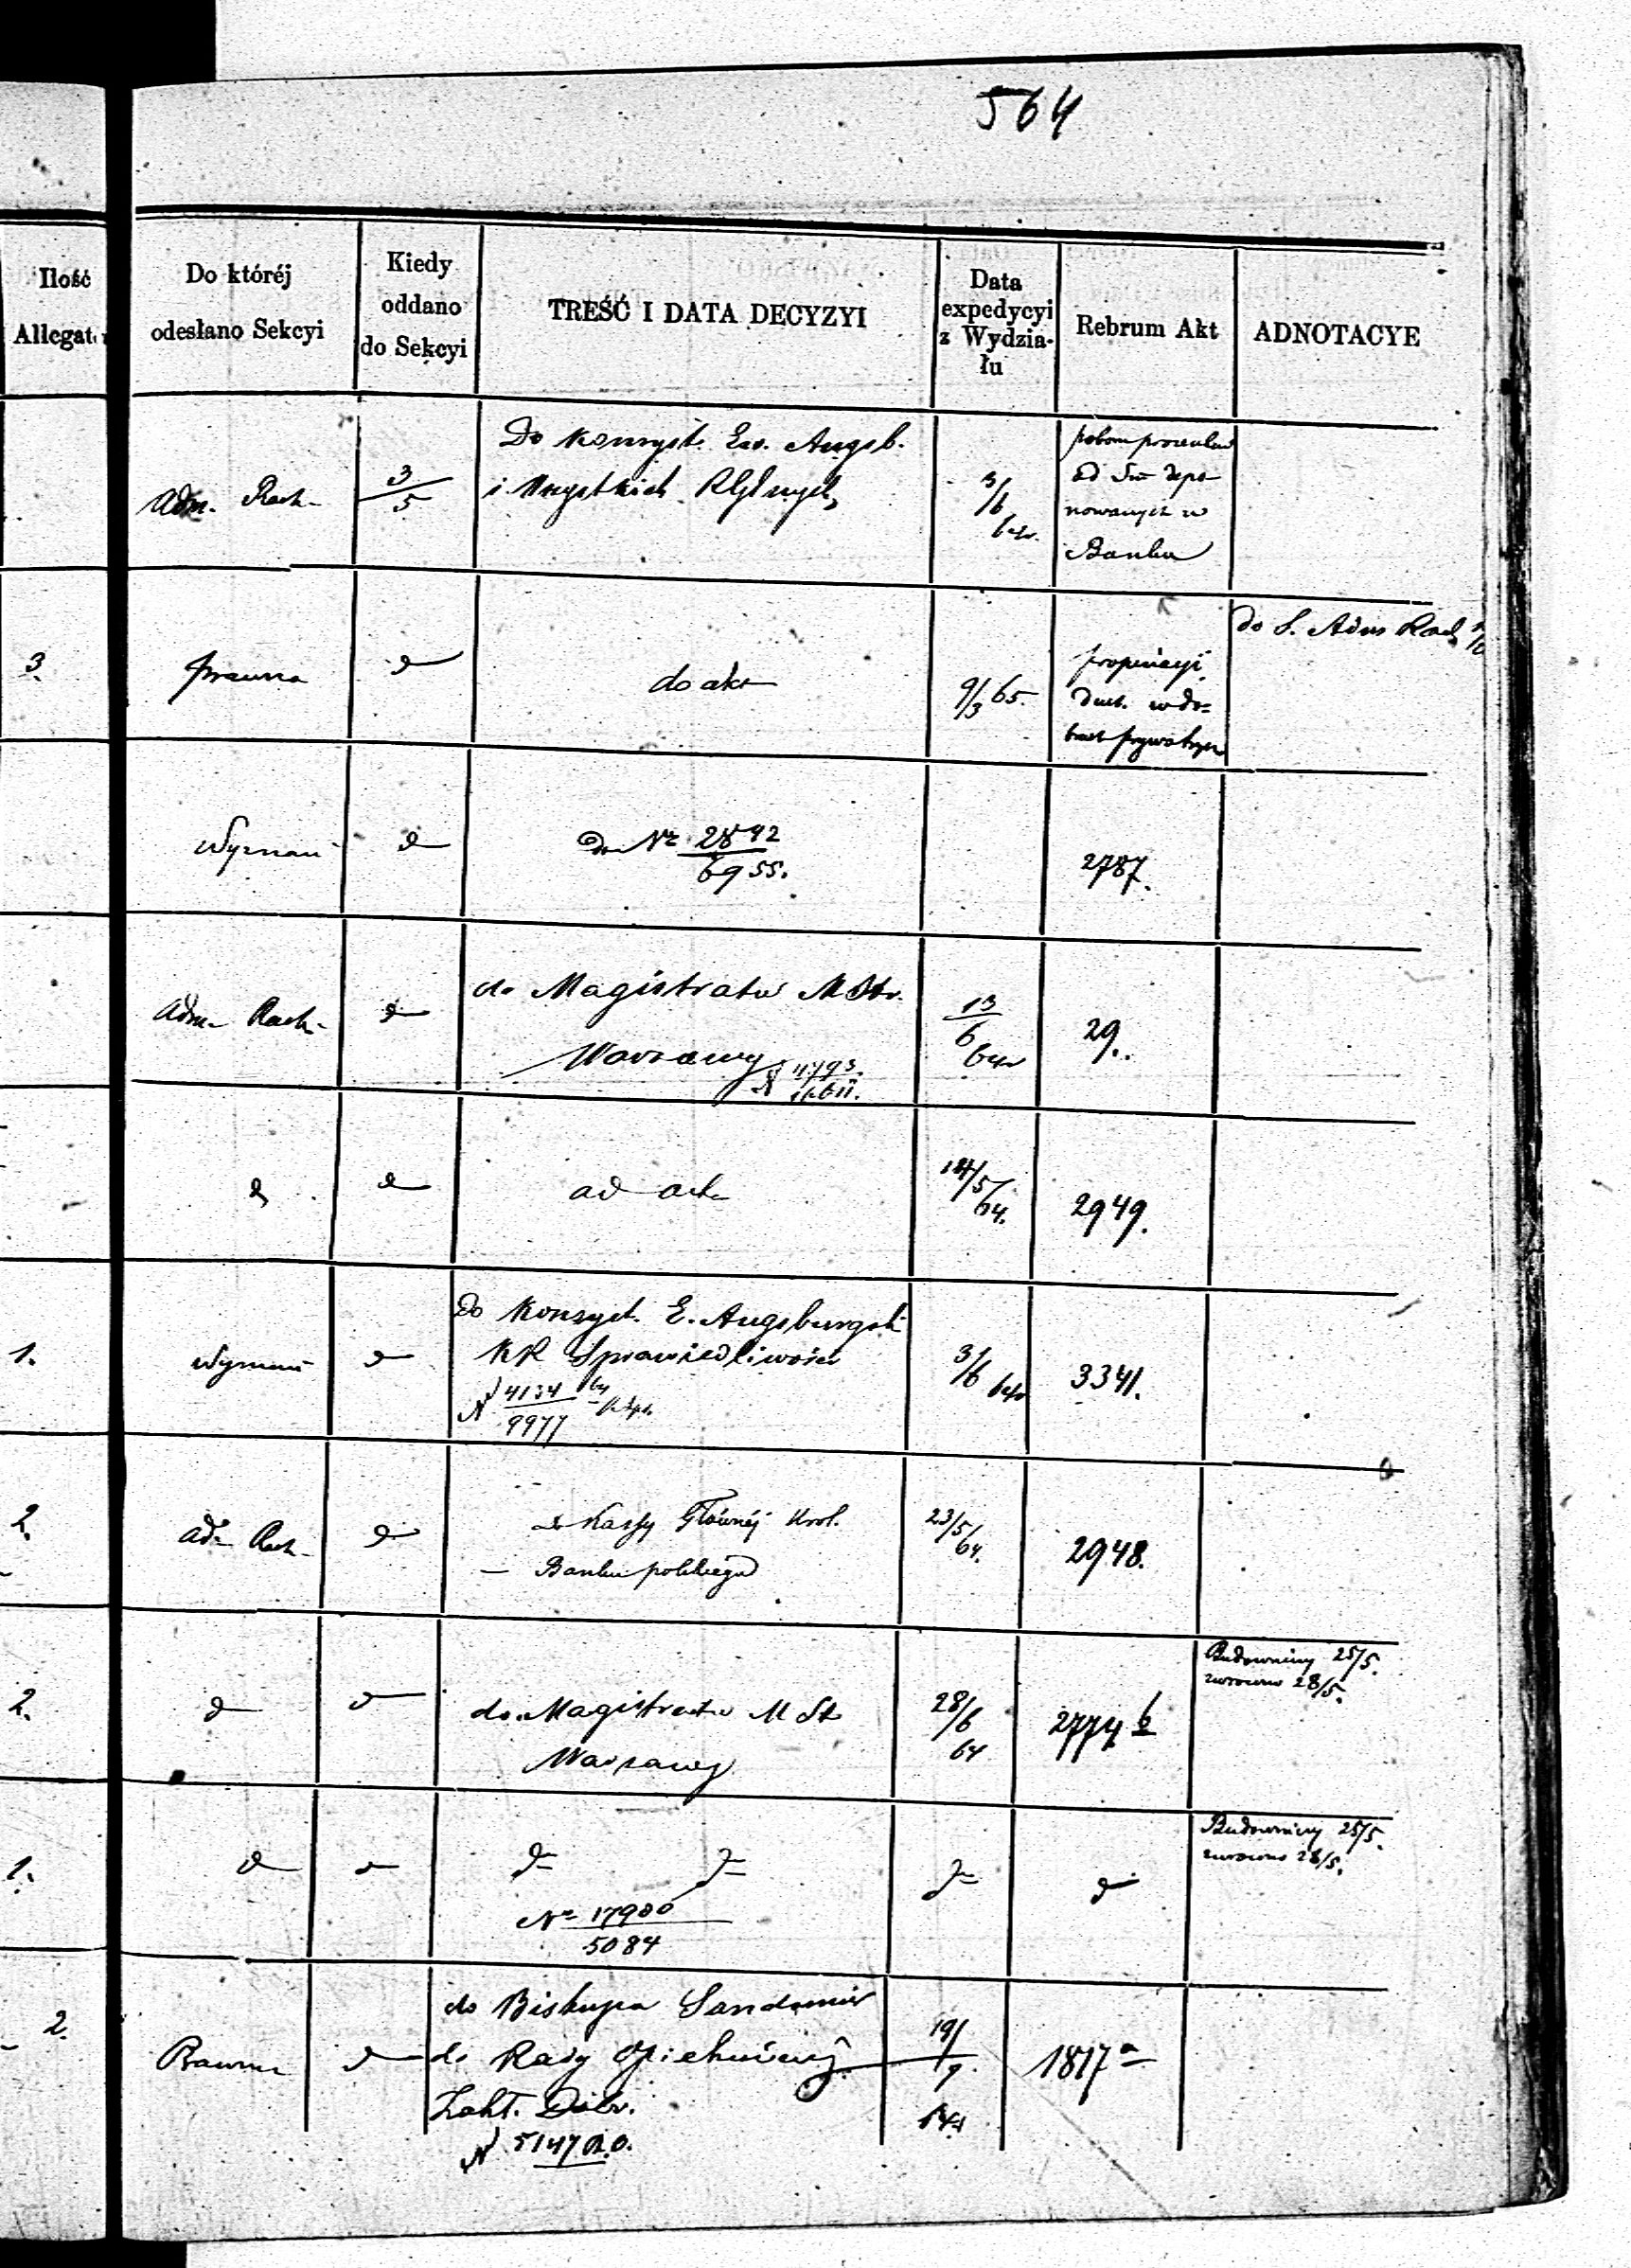 564
Ilość
Allegat.
Do któréj
odesłano Sekcyi
Kiedy
oddano
do Sekcyi
TREŚĆ I DATA DECYZYI
Data
expedycyi
z Wydzia-
łu
Rebrum Akt
ADNOTACYE
Adm. Rach-
3/5
Do Konsyst. Ew. Augsb.
i Wszystkich
3/6
od Sum depo-
nowanych w
Banku
3.
Prawna
do akt
9/3 65.
propinacyi
w do-
do S. Adm Rach
Wyznań
do Nr 2892
6955.
2787.
Adm- Rach-
do Magistratu M St.
Warszawy
N 11793.
13
6
29.
ad acta
14/5
64.
2949.
1.
Wyznań
Do Konsyst. E. Augsburgsk
KR Sprawiedliwości
N 4134
9977
31/6
3341.
2.
Ad- Rach-
do Kassy Głównéj Król.
– Banku polskiego
23/5
64.
2948.
2.
do Magistratu M St
Warszawy
28/6
64
2774 b
Budowniczy 25/5.
zwrócono 28/5.
1.
No 17900
5084
Budowniczy 25/5.
zwrócono 28/5.
2.
Prawna
do Biskupa Sandomir
do Rady Opiekuńczej
Zakł. Dobr.
N 5147
19/
9.
64
1817 a